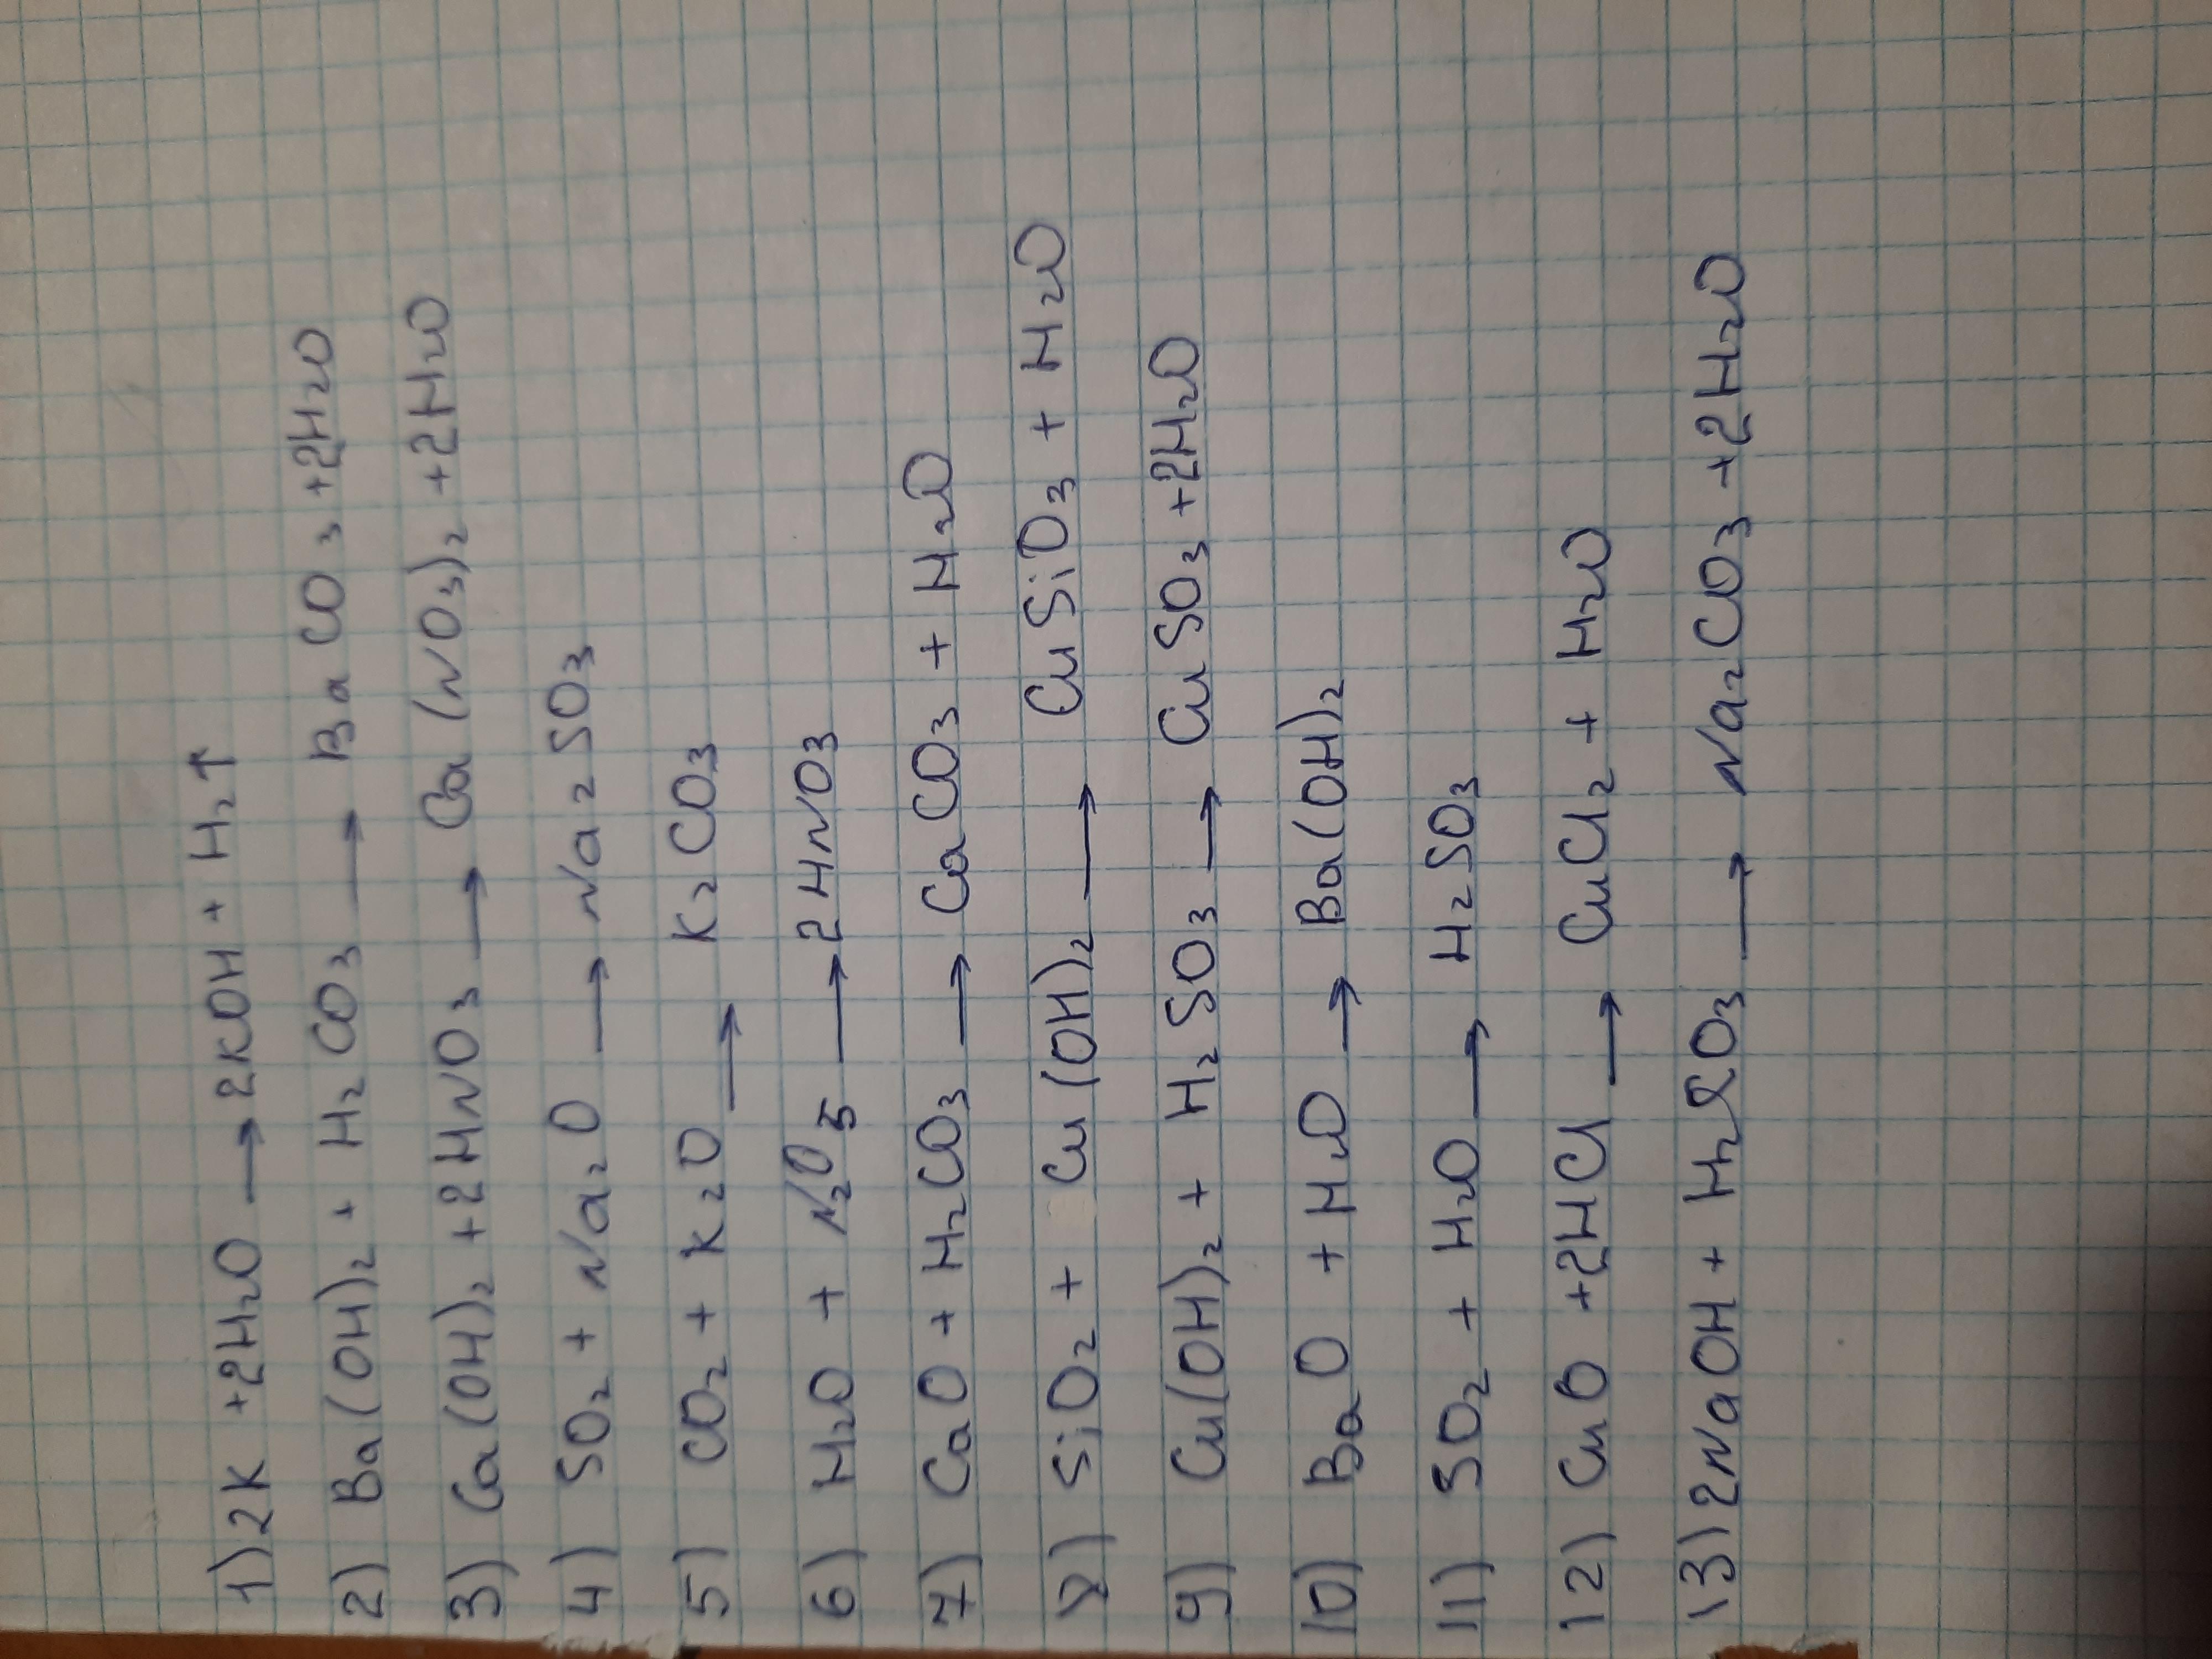 1) 2K + 2H₂O → 2KOH + H₂↑
2) Ba(OH)₂ + H₂CO₃ → BaCO₃ + 2H₂O
3) Ca(OH)₂ + 2HNO₃ → Ca(NO₃)₂ + 2H₂O
4) SO₂ + Na₂O → Na₂SO₃
5) CO₂ + K₂O → K₂CO₃
6) H₂O + N₂O₅ → 2HNO₃
7) CaO + H₂CO₃ → CaCO₃ + H₂O
8) SiO₂ + Cu(OH)₂ → CuSiO₃ + H₂O
9) Cu(OH)₂ + H₂SO₃ → CuSO₃ + 2H₂O
10) BaO + H₂O → Ba(OH)₂
11) SO₂ + H₂O → H₂SO₃
12) CuO + 2HCl → CuCl₂ + H₂O
13) 2NaOH + → Na₂CO₃ + 2H₂O